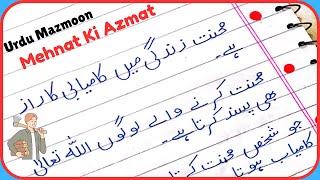 Urdu Mazmoon
Mehnat Ki Azmat
محنت زندگی میں کامیابی کا راز
ہے۔
محنت کرنے والے لوگوں اللہ تعالیٰ
بھی پسند کرتا ہے۔
جو شخص محنت کرتا
کامیاب ہوتا